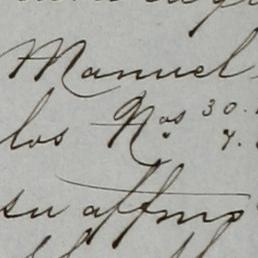 Manuel
los Nos 30.
7.
su affmo